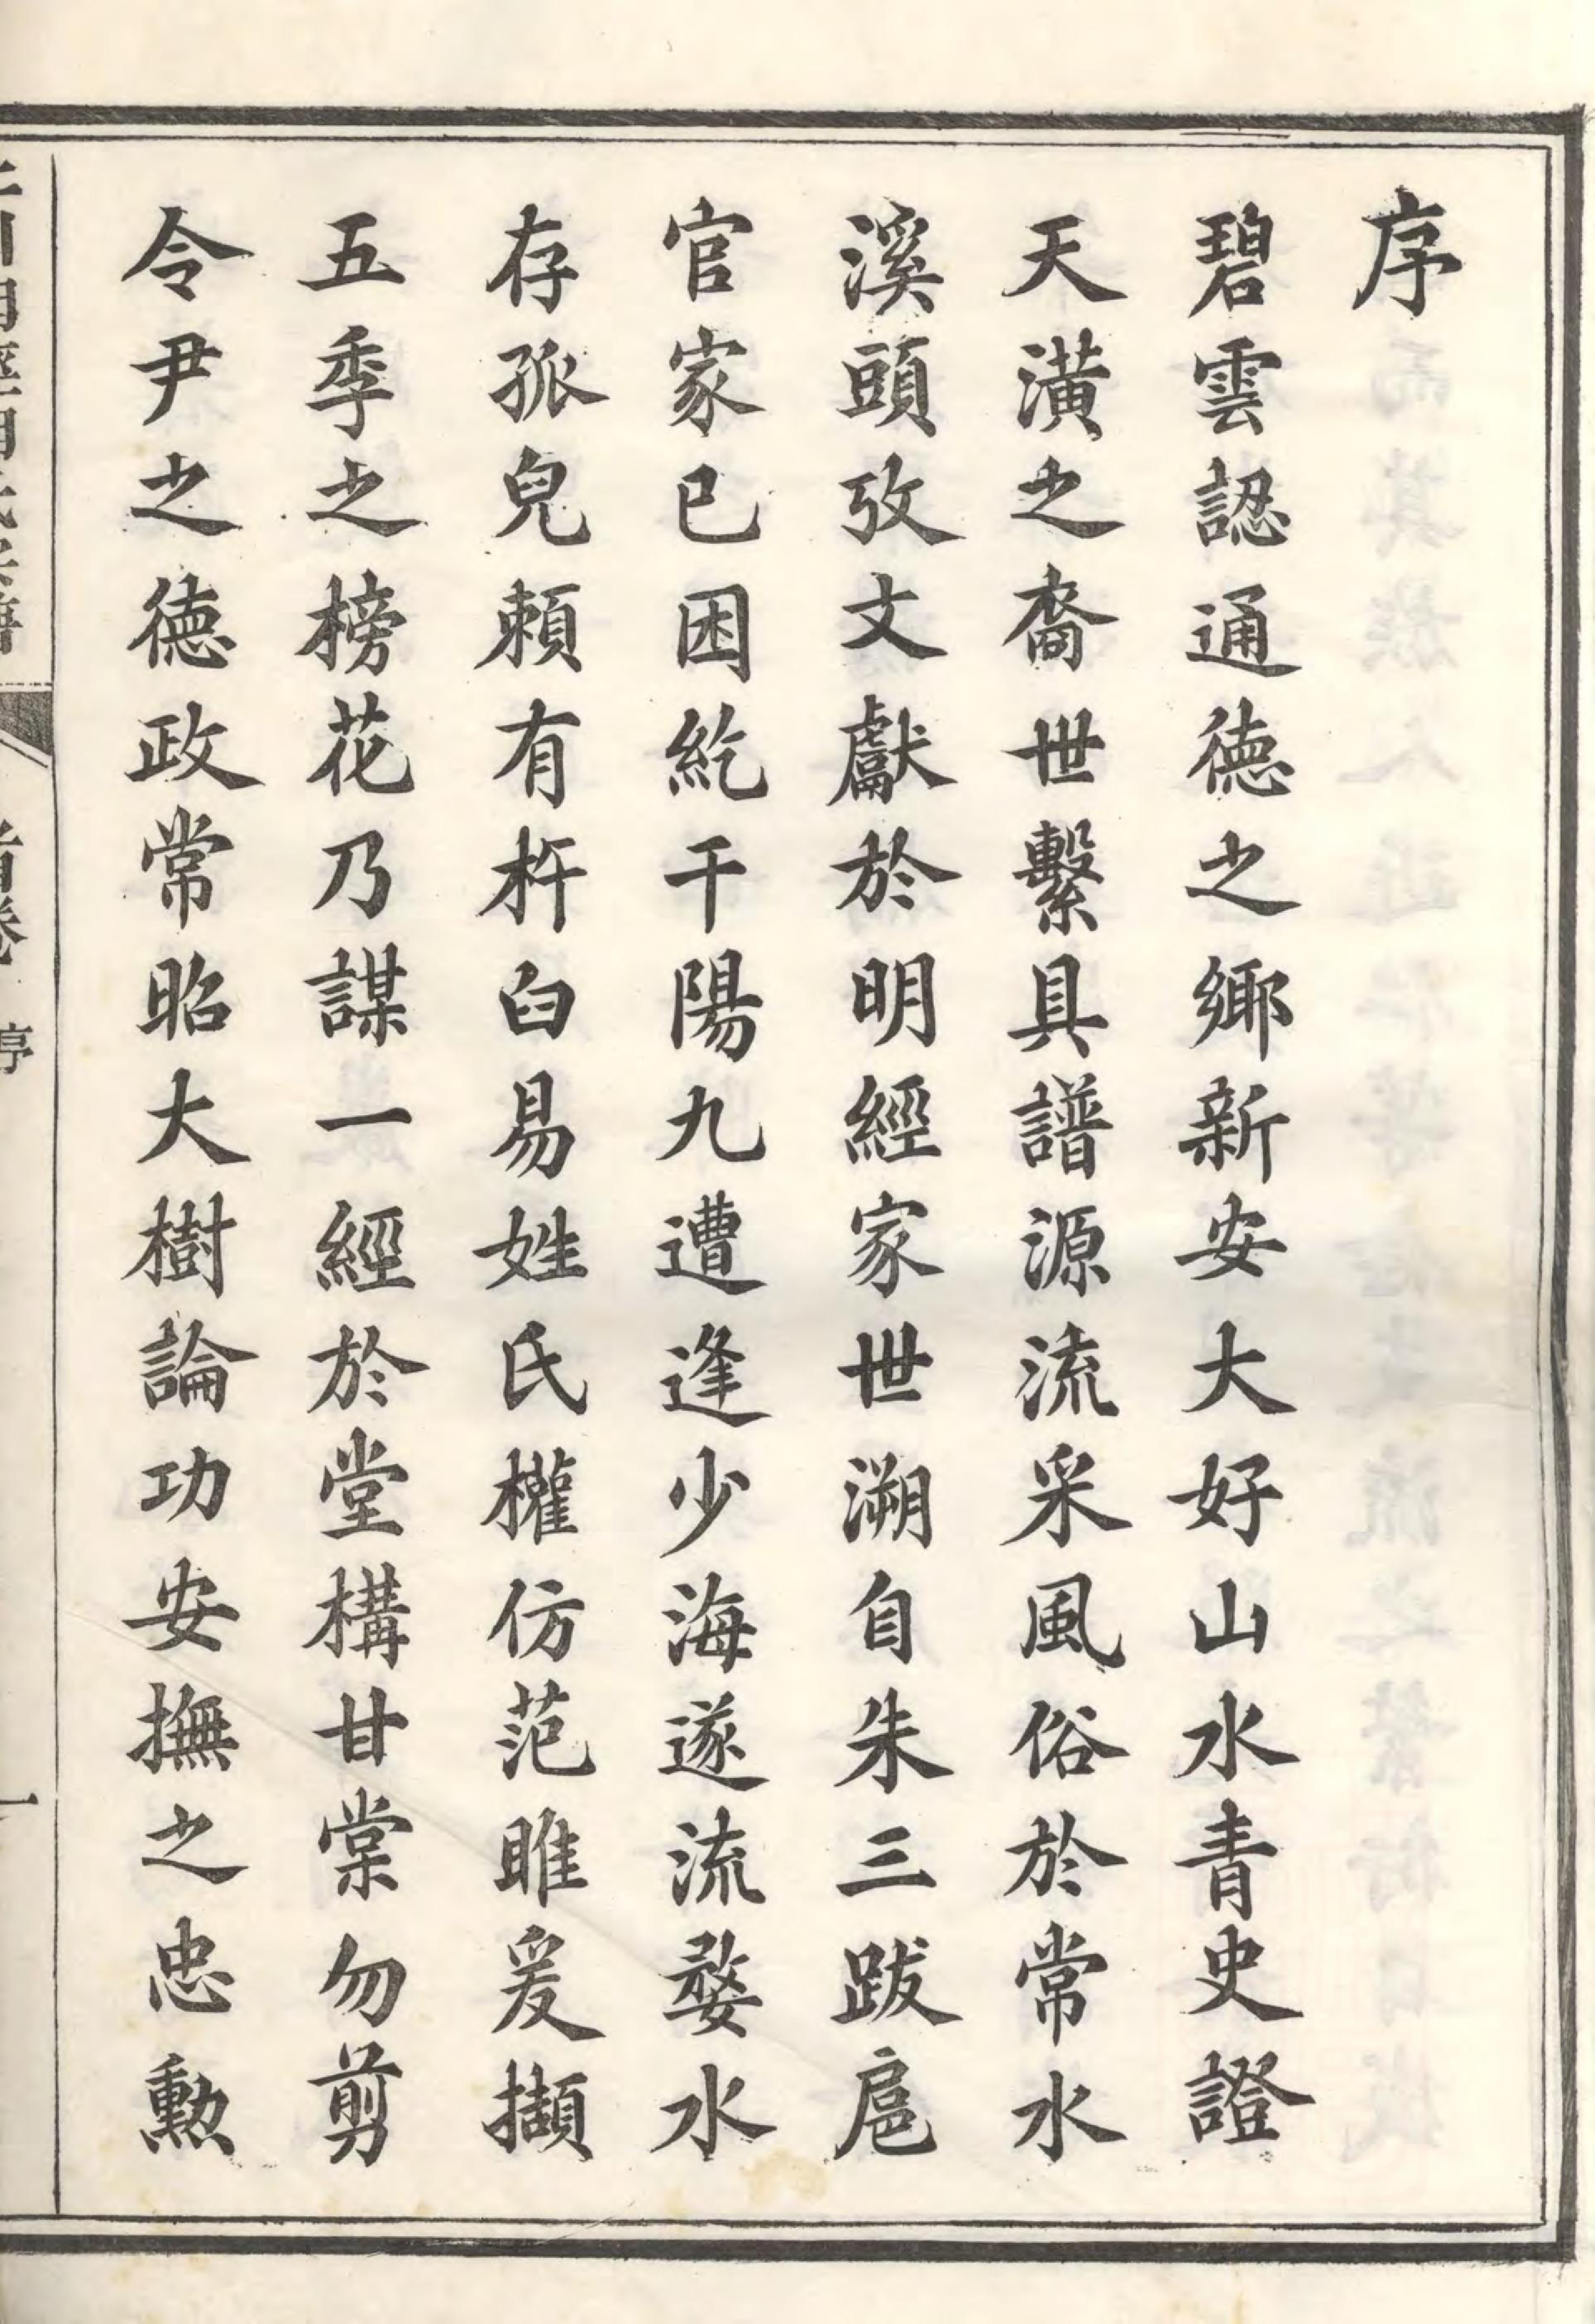 序
碧雲認通德之鄉新安大好山水青史證
天潢之裔世繫具譜源流采風俗於常水
溪頭攷文獻於明經家世溯自朱三跋扈
官家已困紇干陽九遭逢少海遂流婺水
存孤兒賴有杵臼易姓氏權仿范雎爰擷
五季之榜花乃謀一經於堂構甘棠勿剪
令尹之德政常昭大樹論功安撫之忠勲
首卷 序 一